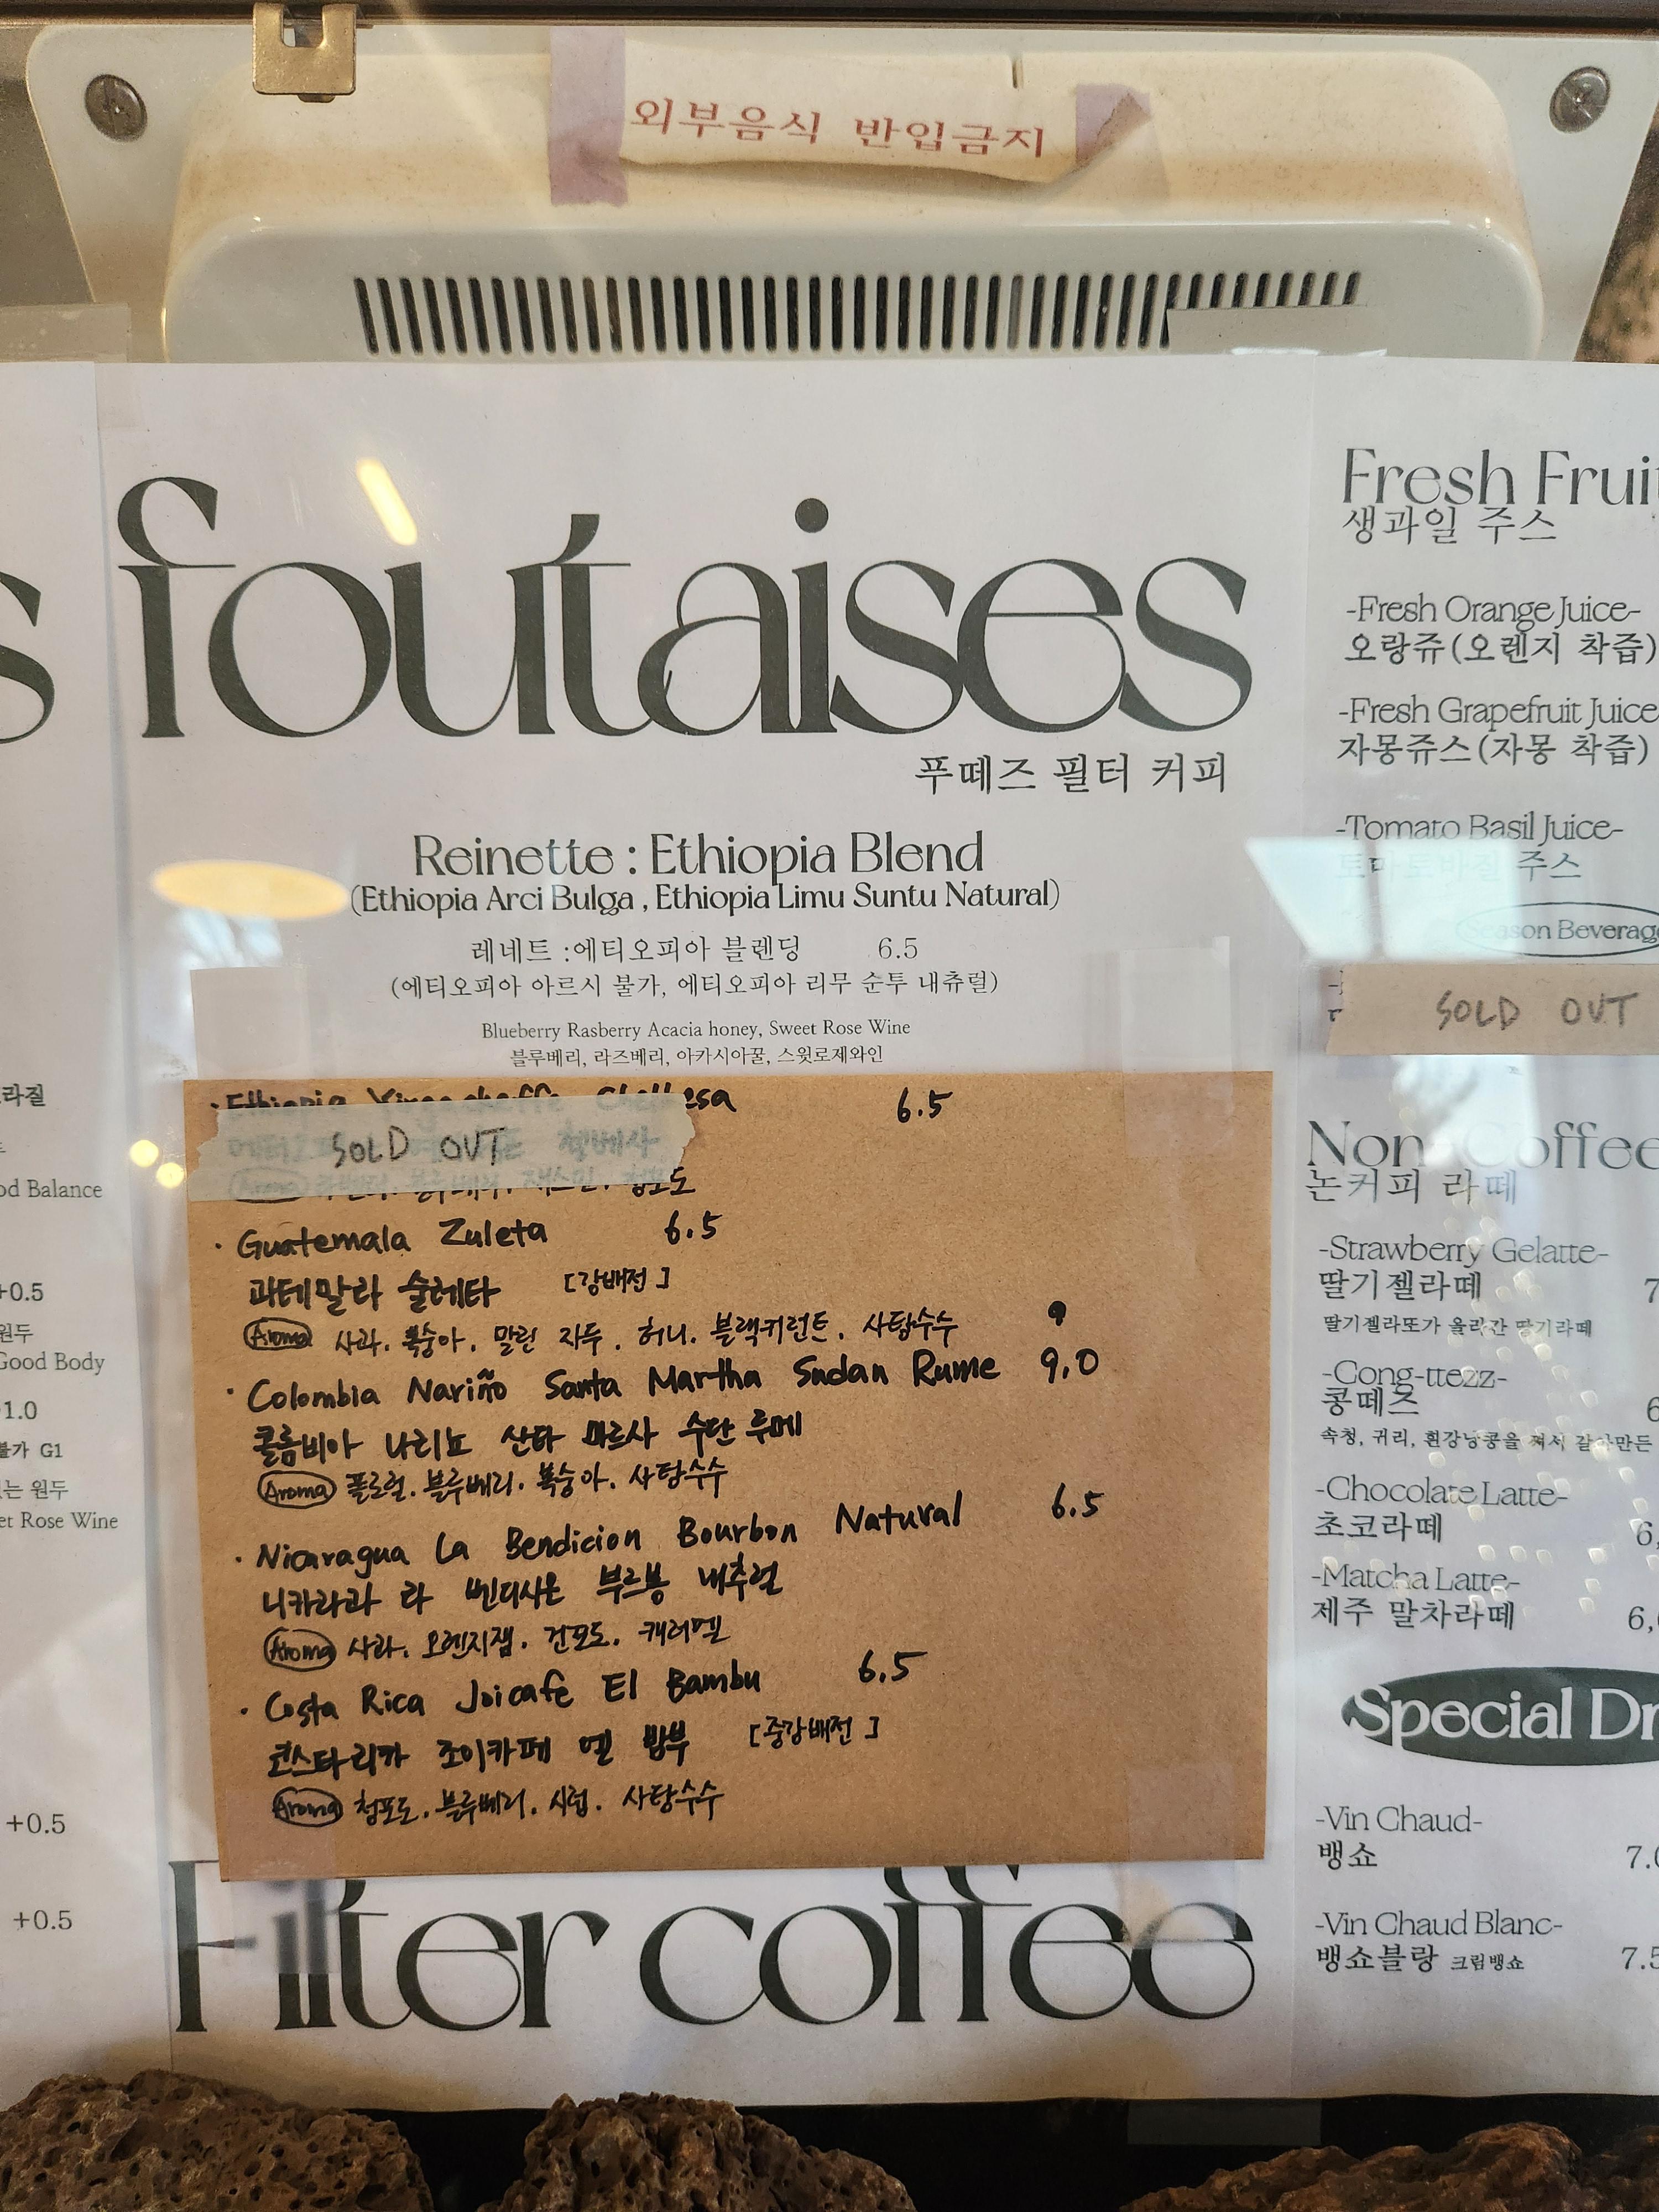 외부음식 반입금지
foutaises
푸떼즈 필터 커피
Reinette : Ethiopia Blend
(Ethiopia Arci Bulga , Ethiopia Limu Suntu Natural)
레네트 :에티오피아 블렌딩 6.5
(에티오피아 아르시 불가, 에티오피아 리무 순투 내츄럴)
Blueberry Rasberry Acacia honey, Sweet Rose Wine
블루베리, 라즈베리, 아카시아꿀, 스윗로제와인
· Ethiopia 6.5
SOLD OUT
· Guatemala Zuleta 6.5
과테말라 술레타 [강배전]
Aroma 사과. 복숭아. 말린 자두. 허니. 블랙커런트. 사탕수수
9
· Colombia Nariño Santa Martha Sudan Rume 9.0
콜롬비아 나리뇨 산타 마르사 수단 루메
Aroma 플로럴. 블루베리. 복숭아. 사탕수수
· Nicaragua La Bendicion Bourbon Natural 6.5
니카라과 라 벤디시온 부르봉 내추럴
Aroma 사과. 오렌지잼. 건포도. 캐러멜
· Costa Rica Joicafe El Bambu 6.5
코스타리카 조이카페 엘 밤부 [중강배전]
Aroma 청포도. 블루베리. 시럽. 사탕수수
Filter coffee
라질
od Balance
+0.5
원두
Good Body
+1.0
불가 G1
있는 원두
et Rose Wine
+0.5
+0.5
Fresh Fruit
생과일 주스
-Fresh Orange Juice-
오랑쥬(오렌지 착즙)
-Fresh Grapefruit Juice
자몽쥬스(자몽 착즙)
-Tomato Basil Juice-
토마토바질 주스
Season Beverage
SOLD OUT
Non Coffee
논커피 라떼
-Strawberry Gelatte-
딸기젤라떼 7
딸기젤라또가 올라간 딸기라떼
-Cong-ttezz-
콩떼즈 6
속청, 귀리, 흰강낭콩을 쪄서 갈아만든
-Chocolate Latte-
초코라떼 6,
-Matcha Latte-
제주 말차라떼 6,
Special Dr
-Vin Chaud-
뱅쇼 7.0
-Vin Chaud Blanc-
뱅쇼블랑 크림뱅쇼 7.5